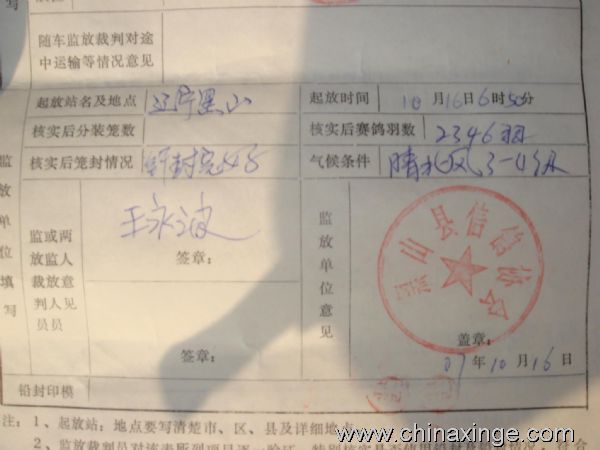 写
随车监放裁判对途
中运输等情况意见
起放站名及地点 辽宁黑山 起放时间 10月16日6时50分
核实后分装笼数 核实后赛鸽羽数 2346羽
核实后笼封情况 铅封完好 气候条件 晴北风3-4级
监放单位填写
监或两
放监人
裁放意
判人见
员员
王永波
签章:
签章:
监放单位意见
黑山县信鸽协会
盖章:
07年10月16日
铅封印模
注: 1、起放站: 地点要写清楚市、区、县及详细地点
2、监放裁判员对该表所列项目逐一验证
www.chinaxinge.com